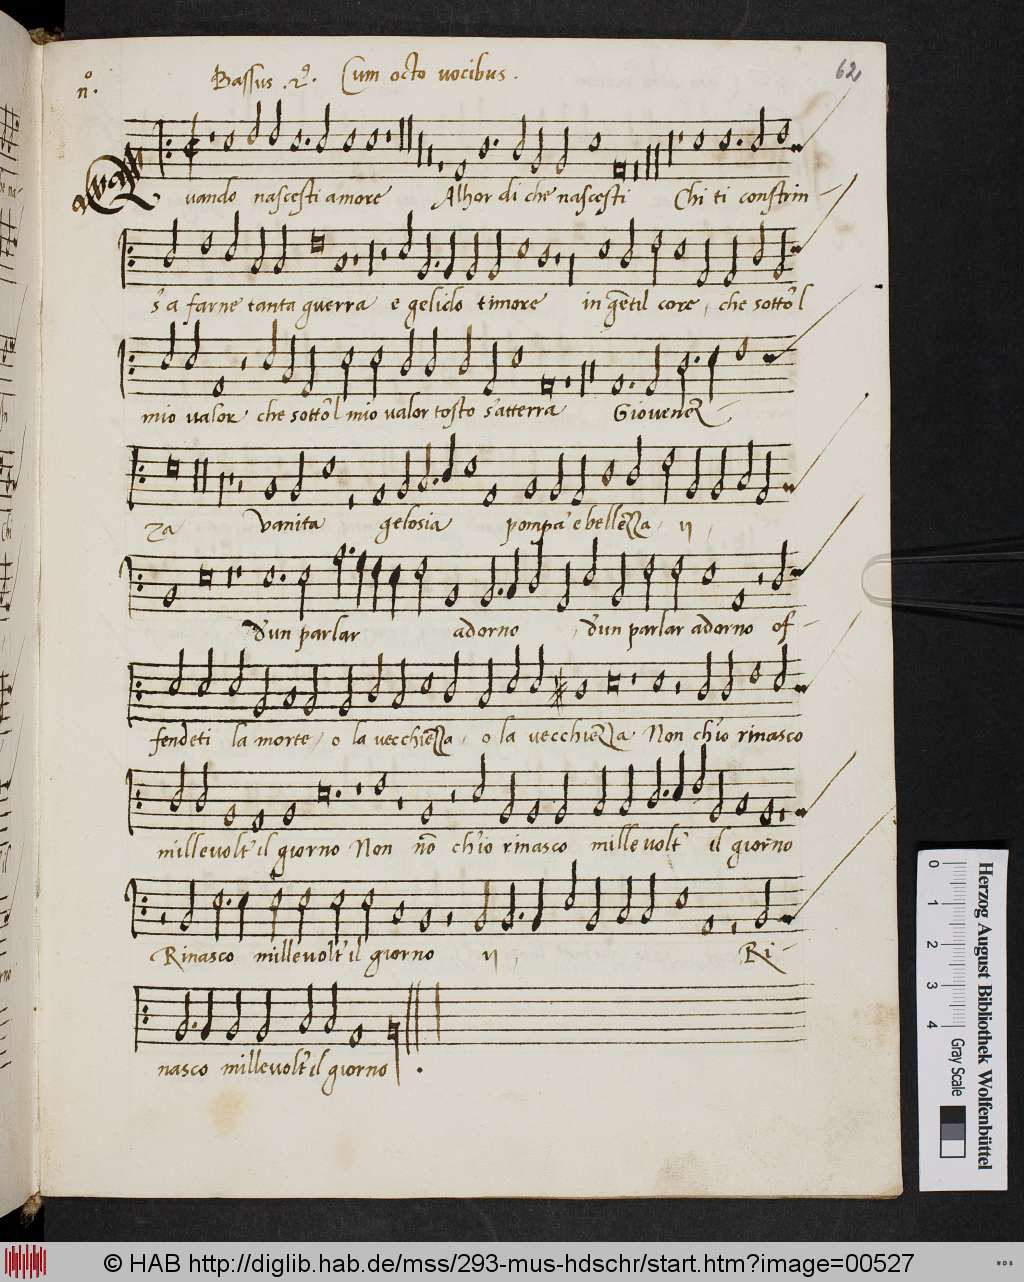 nº. Bassus .2º. Cum octo vocibus. 62
Quando nascesti amore Alhor di che nascesti Chi ti constrin-
s'a farne tanta guerra e gelido timore in gẽtil core, che sotto'l
mio valor che sotto'l mio valor tosto s'atterra Giovenez-
za vanita gelosia pompa e bellezza, ij,
d'un parlar adorno, d'un parlar adorno of-
fendeti la morte, o la vecchiezza, o la vecchiezza Non ch'io rinasco
millevolt'il giorno Non nõ ch'io rinasco millevolt' il giorno
Rinasco millevolt'il giorno ij, Ri-
nasco millevolt'il giorno
Herzog August Bibliothek Wolfenbüttel
0 1 2 3 4 Gray Scale
© HAB http://diglib.hab.de/mss/293-mus-hdschr/start.htm?image=00527